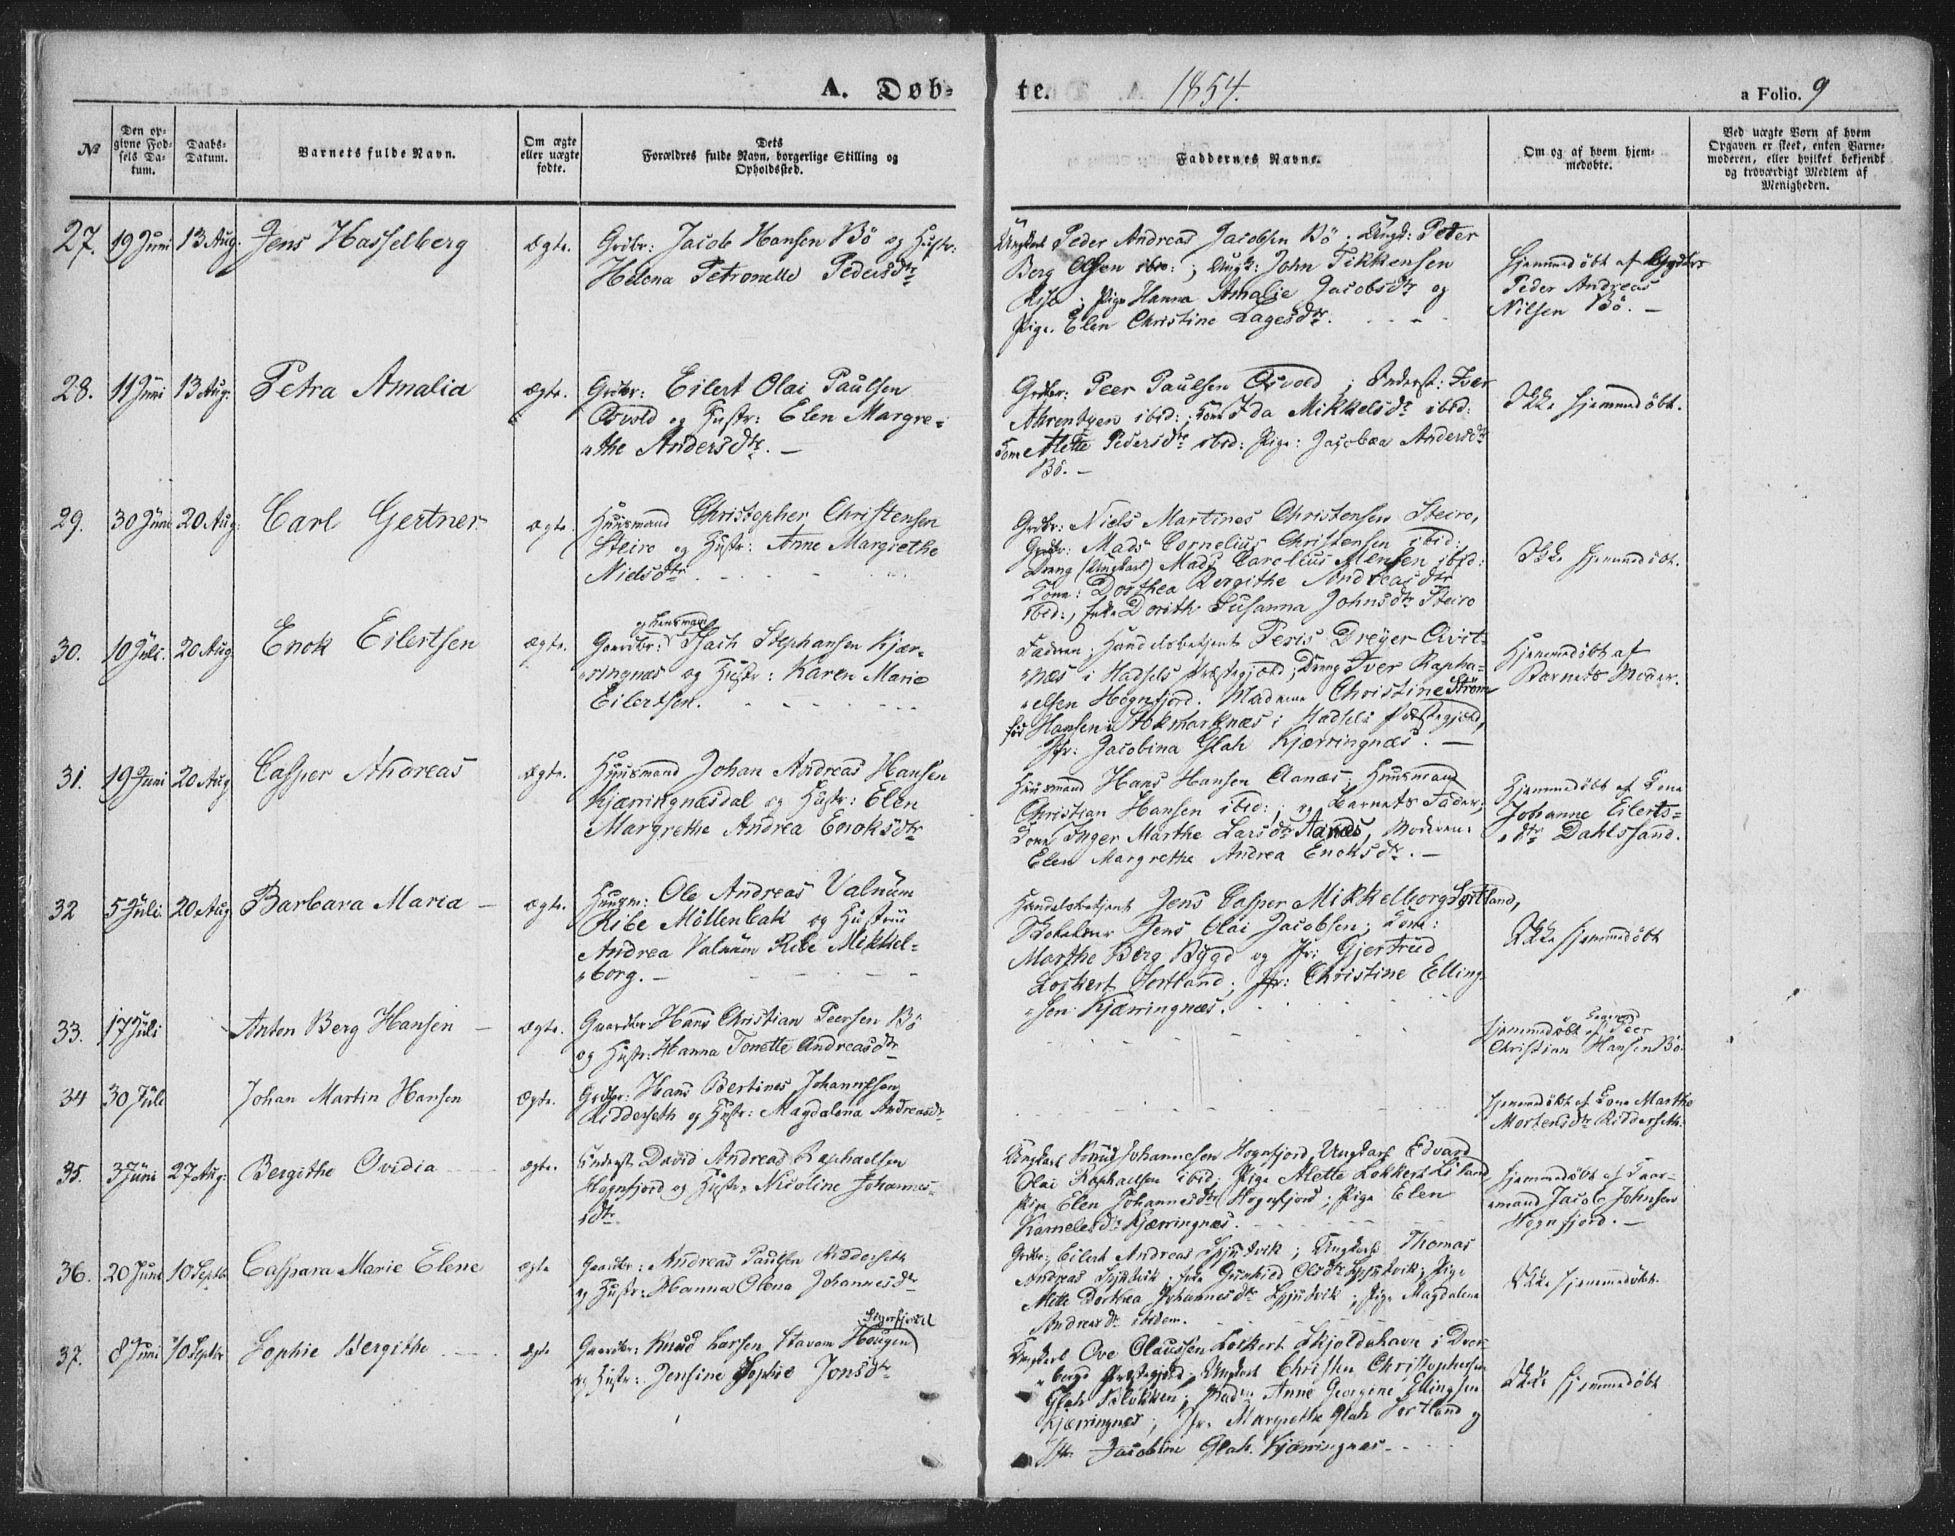 A. Døb-
te.
1854.
a Folio. 9
№
Den op-
givne Fød-
sels Da-
tum.
Daabs-
Datum.
Barnets fulde Navn.
Om ægte
eller uægte
fødte.
Dets
Forældres fulde Navn, borgerlige Stilling og
Opholdssted.
Faddernes Navne.
Om og af hvem hjem-
medøbte.
Ved uægte Børn af hvem
Opgaven er skeet, enten Barne-
moderen, eller hvilket bekjendt
og troværdigt Medlem af
Menigheden.
27. 19 Juni 13 Aug. Jens Hasselberg ægte.
Grdbr: Jacob Hansen Bö og Hustr:
Helena Petronelle Pedersdtr
Ungkarl Peder Andreas Jacobsen Bö; Ungk: Peter
Berg Olsen ibid:; Ungk: John Tikkensen
Pige Hanna Amalie Jacobsdtr og
Pige Elen Christine Lagesdtr.
Hjemmedöbt af
Peder Andreas
Nilsen Bö. -
28. 11 Juni 13 Aug: Petra Amalia ægte.
Grdbr: Eilert Olai Paulsen
Osvold og Hustr: Elen Margre-
the Andersdtr. -
Grdbr: Peer Paulsen Osvold; Inderst: Iver
Ahrentzen ibid:; Kone Ida Mikkelsdtr ibid:
Kone Alette Pedersdtr ibid: Pige: Jacobæa Andersdtr
Bö. -
Ikke hjemmedöbt.
29. 30 Juni 20 Aug: Carl Gertner ægte.
Huusmand Christopher Christensen
Steiro og Hustr: Anne Margrethe
Nielsdtr.
Grdbr: Niels Martines Christensen Steiro,
Grdbr: Mads Cornelius Christensen ibid:
Dreng (Ungkarl) Mads Carelius Mensen ibid:
Kone: Dorthea Bergithe Andreasdtr
ibid:, Enke Dorith Susanna Johnsdtr Steiro
Ikke hjemmedöbt.
30. 10 Juli. 20 Aug Enok Eilertsen ægte.
og Lensmand
Gaardbr: Isach Stephansen Kjær-
ringnæs og Hustr: Karen Marie
Eilertsen.
Faderen; Handelsbetjent Peris Dreyer Qvit-
næs i Hadsels Præstegjeld; Dreng Iver Rapha-
elsen Hognfjord. Madame Christine Ström
föd Hansen Stokmarknæs i Hadsels Præstegjeld,
Jfr: Jacobina Glah Kjærringnæs. -
Hjemmedöbt af
Barnets Moder.
31. 19 Juni 20 Aug Casper Andreas ægte.
Huusmand Johan Andreas Hansen
Kjærringnæsdal og Hustr: Elen
Margrethe Andrea Enoksdtr
Huusmand Hans Hansen Aanæs, Huusmand
Christian Hansen ibid:; og Barnets Fader;
Kone Inger Marthe Larsdtr Aanæs, Moderen:
Elen Margrethe Andrea Enoksdtr. -
Hjemmedöbt af Kone
Johanne Eilerts-
dtr Dahlssand.
32 5 Juli. 20 Aug Barbara Maria - ægte.
Huusm: Ole Andreas Valnum
Ribe Möllenbak og Hustru
Andrea Valnum Ribe Mikkel-
borg. -
Handelsbetjent Jens Casper Mikkelborg Sortland,
Skolelærer Jens Olai Jacobsen; Kone:
Marthe Berg Bygd og Jfr: Gjertrud
Lockert Sortland; Jfr: Christine Elling-
sen Kjærringnæs.
Ikke hjemmedöbt
33. 17 Juli Anton Berg Hansen - ægte.
Gaardbr Hans Christian Peersen Bö
og Hustr: Hanna Tonette Andreasdtr
Hjemmedöbt af Peer
Christian Hansen Bö
34 30 Juli Johan Martin Hansen ægte.
Grdbr: Hans Bertines Johannesen
Ridderseth og Hustr: Magdalena Andreasdtr
Hjemmedöbt af Kone Marthe
Mortensdtr Ridderseth.
35. 3 Juni 27 Aug: Bergithe Ovidia ægte.
Inderst David Andreas Raphaelsen
Hognfjord og Hustr: Nicoline Johannes-
dtr
Ungkarl Knud Johannesen Hognfjord, Ungkarl Edvard
Olai Raphaelsen ibid; Pige Alette Lokkert Liland
Pige Elen Johannesdtr Hognfjord; Pige Elen
Kornelesdtr Kjærringnæs.
Hjemmedöbt af Faar-
mand Jacob Johnsen
Hognfjord. -
36. 20 Juni 10 Septbr Caspara Marie Elene ægte
Gaardbr: Andreas Paulsen Ridderseth
og Hustr: Hanna Olena Johannesdtr
Grdbr: Eilert Andreas Spjutvik; Ungkarl Thomas
Andreas Spjutvik; Enke Gunhild Olsdtr Spjutvik; Pige
Mette Dorthea Johannesdtr Spjutvik; Pige Magdalena
Andreasdtr ibidem.
Ikke hjemmedöbt.
37. 8 Juni 10 Septbr Sophie Bergithe ægte
Sigerfjord
Gaardbr: Knud Larsen Stavem Hougen
og Hustr: Jensine Sophie Jonsdtr
Ungkarl Ove Olaussen Lockert Skjoldehavn i Dver-
bergs Præstegjeld; Ungkarl Christen Christophersen
Glah Klokken; Mad: Anne Georgine Ellingsen
Kjærringnæs; Jfr. Margrethe Glah Sortland og
Jfr. Jacobine Glah Kjærringnæs
Ikke hjemmedöbt